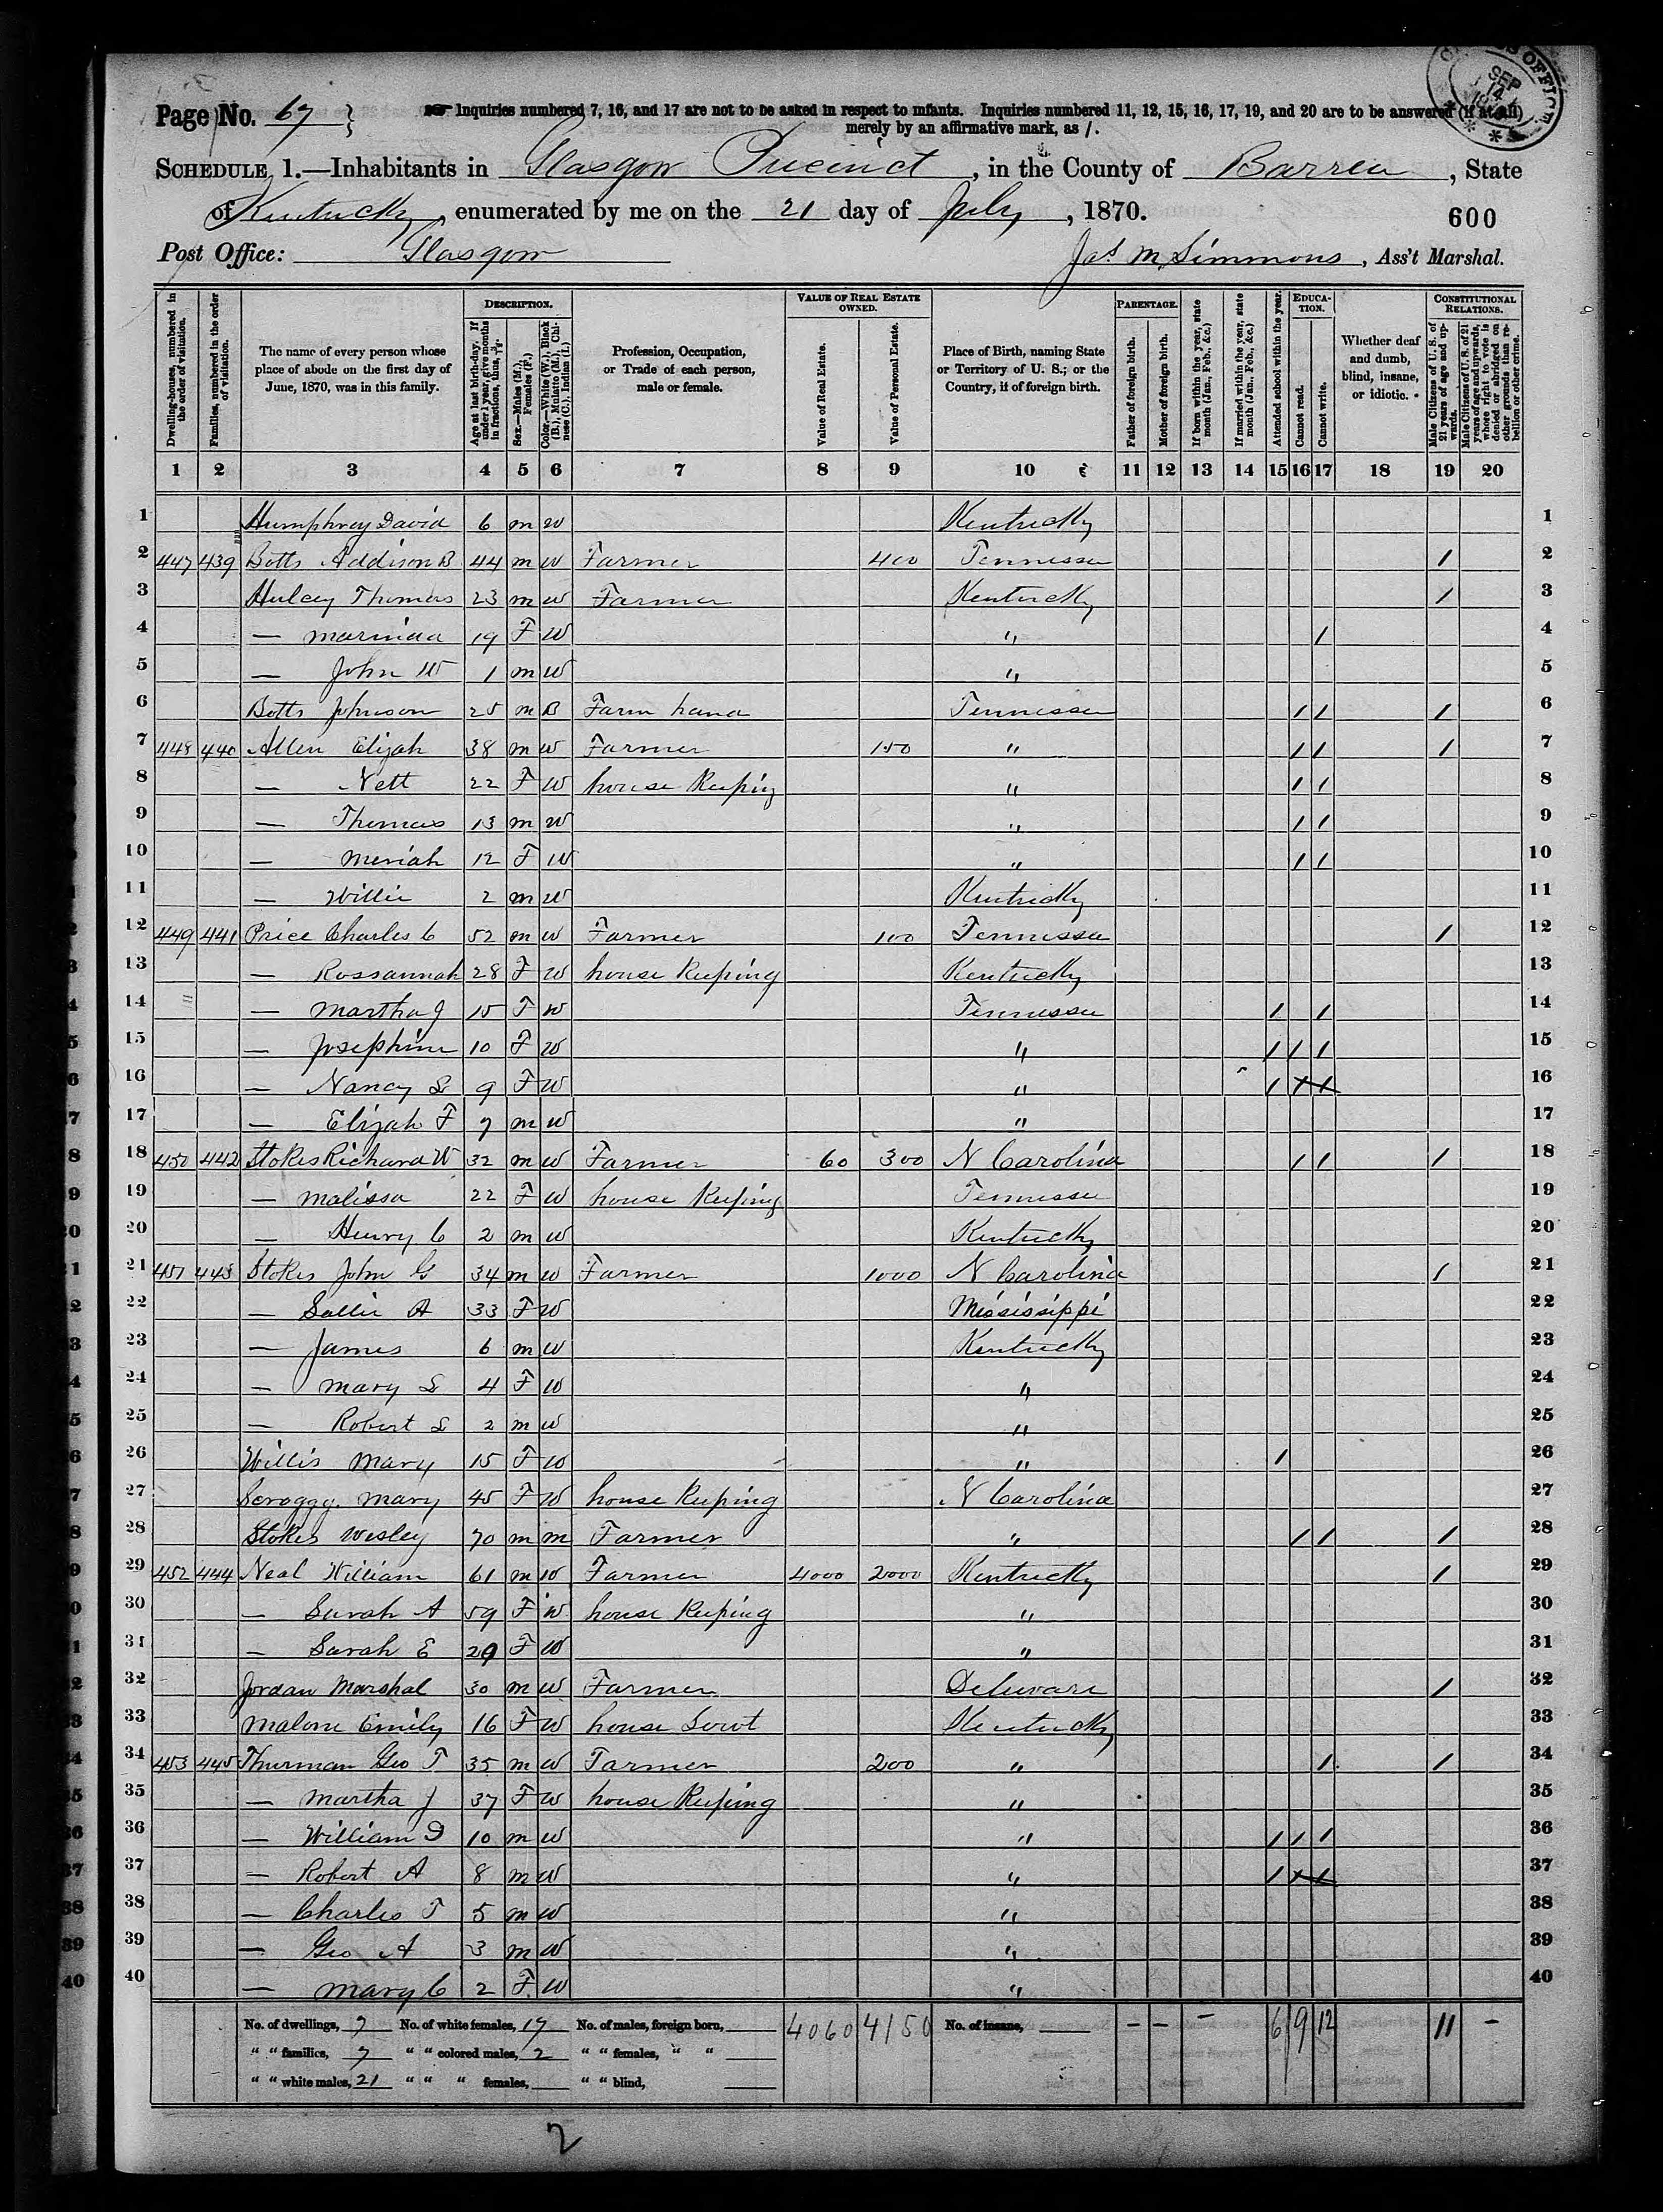 Page No. 67 } Inquiries numbered 7, 16, and 17 are not to be asked in respect to infants. Inquiries numbered 11, 12, 15, 16, 17, 19, and 20 are to be answered (if at all)
merely by an affirmative mark, as /.
SCHEDULE 1.—Inhabitants in Glasgow Precinct, in the County of Barren, State
of Kentucky, enumerated by me on the 21 day of July, 1870.
600
Post Office: Glasgow Jas. M. Simmons, Ass't Marshal.
Dwelling-houses, numbered in the order of visitation.
Families, numbered in the order of visitation.
The name of every person whose place of abode on the first day of June, 1870, was in this family.
DESCRIPTION.
Age at last birth-day. If under 1 year, give months in fractions, thus, 3/12.
Sex.—Males (M.), Females (F.)
Color.—White (W.), Black (B.), Mulatto (M.), Chinese (C.), Indian (I.)
Profession, Occupation, or Trade of each person, male or female.
VALUE OF REAL ESTATE OWNED.
Value of Real Estate.
Value of Personal Estate.
Place of Birth, naming State or Territory of U. S.; or the Country, if of foreign birth.
PARENTAGE.
Father of foreign birth.
Mother of foreign birth.
If born within the year, state month (Jan., Feb., &c.)
If married within the year, state month (Jan., Feb., &c.)
Attended school within the year.
EDUCATION.
Cannot read.
Cannot write.
Whether deaf and dumb, blind, insane, or idiotic.
CONSTITUTIONAL RELATIONS.
Male Citizens of U. S. of 21 years of age and upwards.
Male Citizens of U. S. of 21 years of age and upwards, whose right to vote is denied or abridged on other grounds than rebellion or other crime.
1 2 3 4 5 6 7 8 9 10 11 12 13 14 15 16 17 18 19 20
1 Humphrey David 6 m W Kentucky 1
2 447 439 Botts Addison B 44 m W Farmer 400 Tennessee / 2
3 Hulcey Thomas 23 m W Farmer Kentucky / 3
4 — Marinda 19 F W " / 4
5 — John W 1 m W " 5
6 Botts Johnson 25 m B Farm hand Tennessee / / / 6
7 448 440 Allen Elijah 38 m W Farmer 150 " / / / 7
8 — Nett 22 F W house Keeping " / / 8
9 — Thomas 13 m W " / / 9
10 — Meriah 12 F W " / / 10
11 — Willie 2 m W Kentucky 11
12 449 441 Price Charles C 52 m W Farmer 100 Tennessee / 12
13 — Rossannah 28 F W house Keeping Kentucky 13
14 — Martha J 15 F W Tennessee / / 14
15 — Josephine 10 F W " / / / 15
16 — Nancy L 9 F W " / / / 16
17 — Elijah F 7 m W " 17
18 450 442 Stokes Richard W 32 m W Farmer 60 300 N Carolina / / / 18
19 — Malissa 22 F W house Keeping Tennessee 19
20 — Henry C 2 m W Kentucky 20
21 451 443 Stokes John G 34 m W Farmer 1000 N Carolina / 21
22 — Sallie A 33 F W Mississippi 22
23 — James 6 m W Kentucky 23
24 — Mary L 4 F W " 24
25 — Robert L 2 m W " 25
26 Willis Mary 15 F W " / 26
27 Scroggy Mary 45 F W house Keeping N Carolina 27
28 Stokes Wesley 70 m m Farmer " / / / 28
29 452 444 Neal William 61 m W Farmer 4000 2000 Kentucky / 29
30 — Sarah A 59 F W house Keeping " 30
31 — Sarah E 29 F W " 31
32 Jordan Marshal 30 m W Farmer Deleware / 32
33 Malone Emily 16 F W house Servt Kentucky 33
34 453 445 Thurman Geo T 35 m W Farmer 200 " / / 34
35 — Martha J 37 F W house Keeping " 35
36 — William D 10 m W " / / / 36
37 — Robert A 8 m W " / / / 37
38 — Charles T 5 m W " 38
39 — Geo A 3 m W " 39
40 — Mary C 2 F W " 40
No. of dwellings, 7 No. of white females, 17 No. of males, foreign born, 4060 4150 No. of insane, — — — 6 9 12 11 —
" " families, 7 " " colored males, 2 " " females, " "
" " white males, 21 " " " females, " " blind,
2